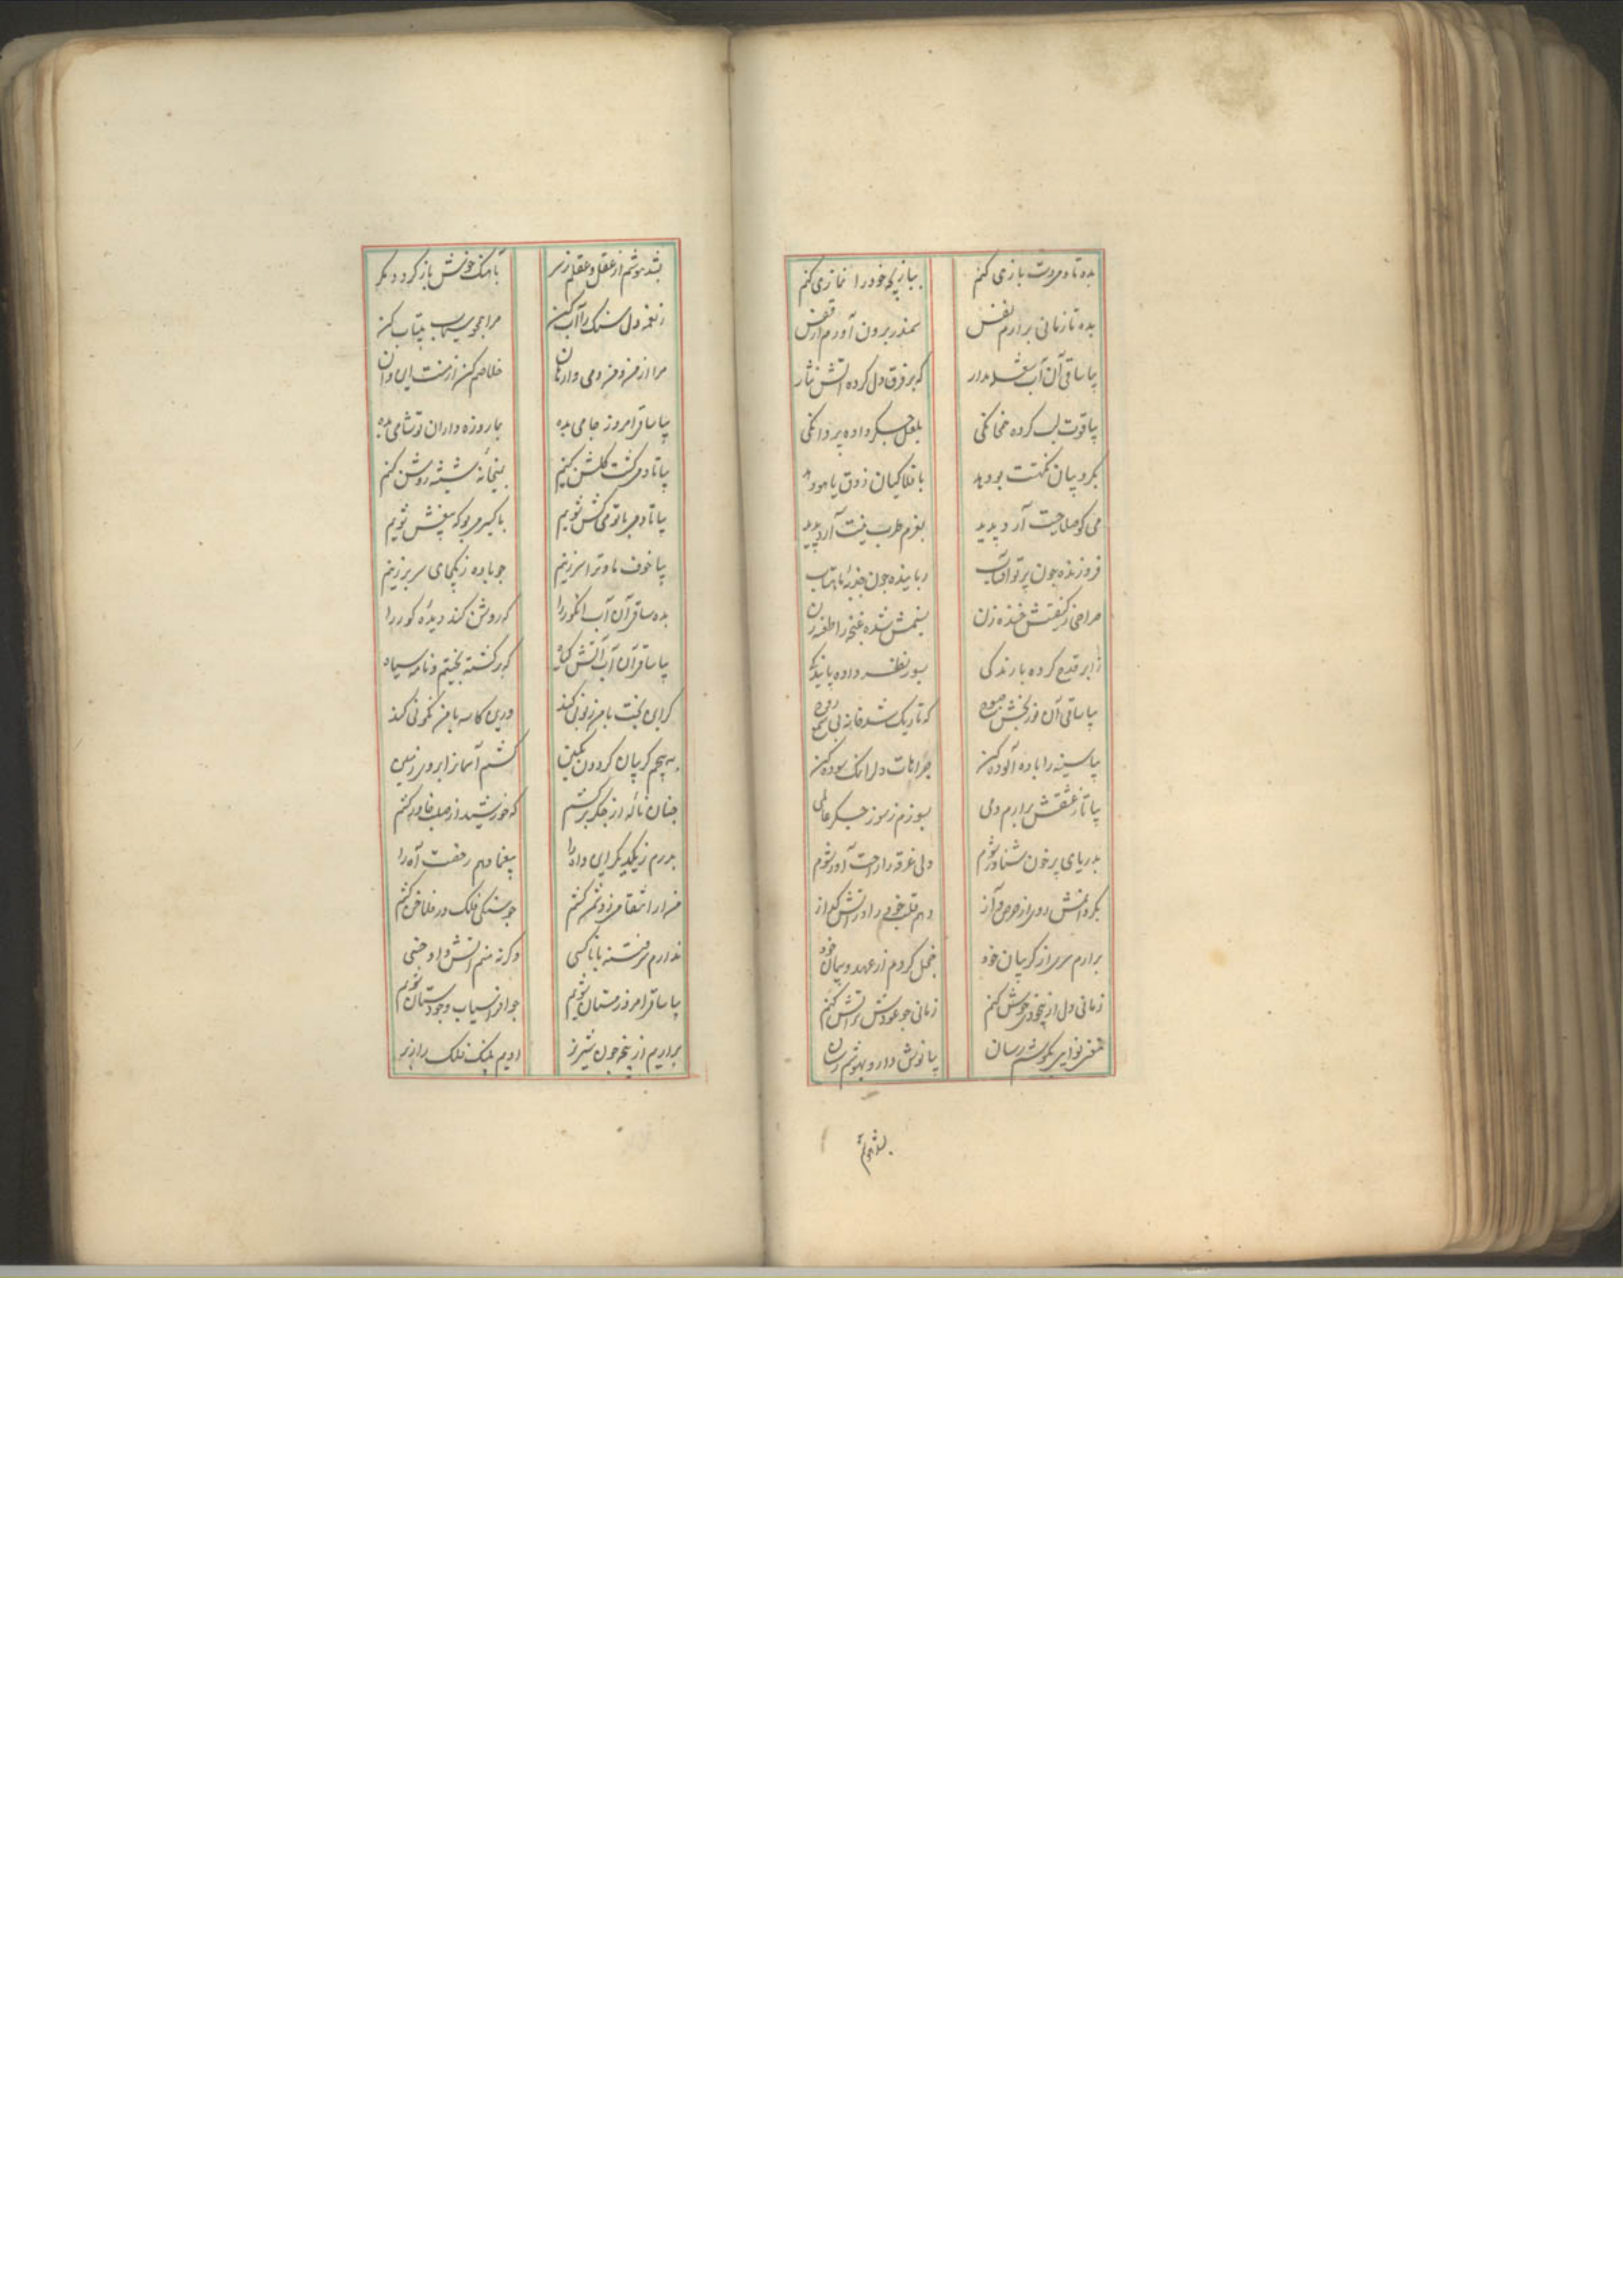 بده تا دمی دست بازی کنم ببازیچه خود را نمازی کنم
بده تا زمانی برارم نفس سمندر برون آورم از قفس
بیا ساقی آن آب شعله مدار که بر فرق دل کرده آتش نثار
بیاقوت لب کرده همخانگی بلعل جگر داده پروانگی
بکروبیان نکهت بو دهد بافلاکیان ذوق یاهو دهد
می کو صلاحیت آرد پدید بعزم طرب نیت آرد پدید
فروزنده چون پرتو آفتاب رباینده چون جذبه ماهتاب
صراحی ز کیفیتش خنده زن شده غنچه را طعنه زن
ز ابر قدح کرده بارندگی داده پایندگی
بیا ساقی آن نوربخش که تاریک شد خانه بی شمع
بیا سینه را باده آلوده کن جراحات دل را نمک سوده کن
بیا تا ز عشقش برارم دمی بسوزم ز سوز جگر عالمی
بدریای پر خون شناور شوم دلی غرقه را راحت آور شوم
بگردانمش روی از حرص و آز دهم قلب خود را در آتش گداز
برارم سری از گریبان خود خجل گردم از عهد و پیمان خود
زمانی دل از بیخودی خوش کنم زمانی چو عودش بر آتش کنم
مغنی نوایی بگوشم رسان بیا نوش دارو بهوشم رسان
بشد هوشم
بشد هوشم از عقل و عقلم ز سر بآهنگ خوش باز گردد مگر
ز نغمه دل سنگ را آب کن مرا همچو سیماب بیتاب کن
مرا از من و من دمی وارهان خلاصم کن از منت این و آن
بیا ساقی امروز جامی بده بما روزه داران تو شامی بده
بیا تا دمی گشت گلشن کنیم بمیخانه شیشه روشن کنیم
بیا تا دمی با تو می کش شویم باکسیر می بو که بیغش شویم
بیا خوف ما و ترا سر زنیم چو باده ز یکجای سر بر زنیم
بده ساقی آن آب انگور را که روشن کند دیده کور را
بیا ساقی آن آب آتش گیاه که برگشته بختیم و نامه سیاه
گر این بخت با من زبونی کند درین کاسه با من نگونی کند
بپیچم گریبان گردون بکین کشم آسمان را بروی زمین
چنان ناله از جگر برکشم که خورشید از صلب خاور کشم
بدرم ز یکدیگر این داه را بیغما دهم رخصت آه را
ثمن کشم چو سنگی فلک در فلاخن کشم
ندارم سر فتنه با ناکسی وگرنه منم آتش و او خسی
بیا ساقی امروز مستان شویم چو افراسیاب وجودستان شویم
براریم از پنجه چون شیر نر ادیم پلنگ فلک را ز بر